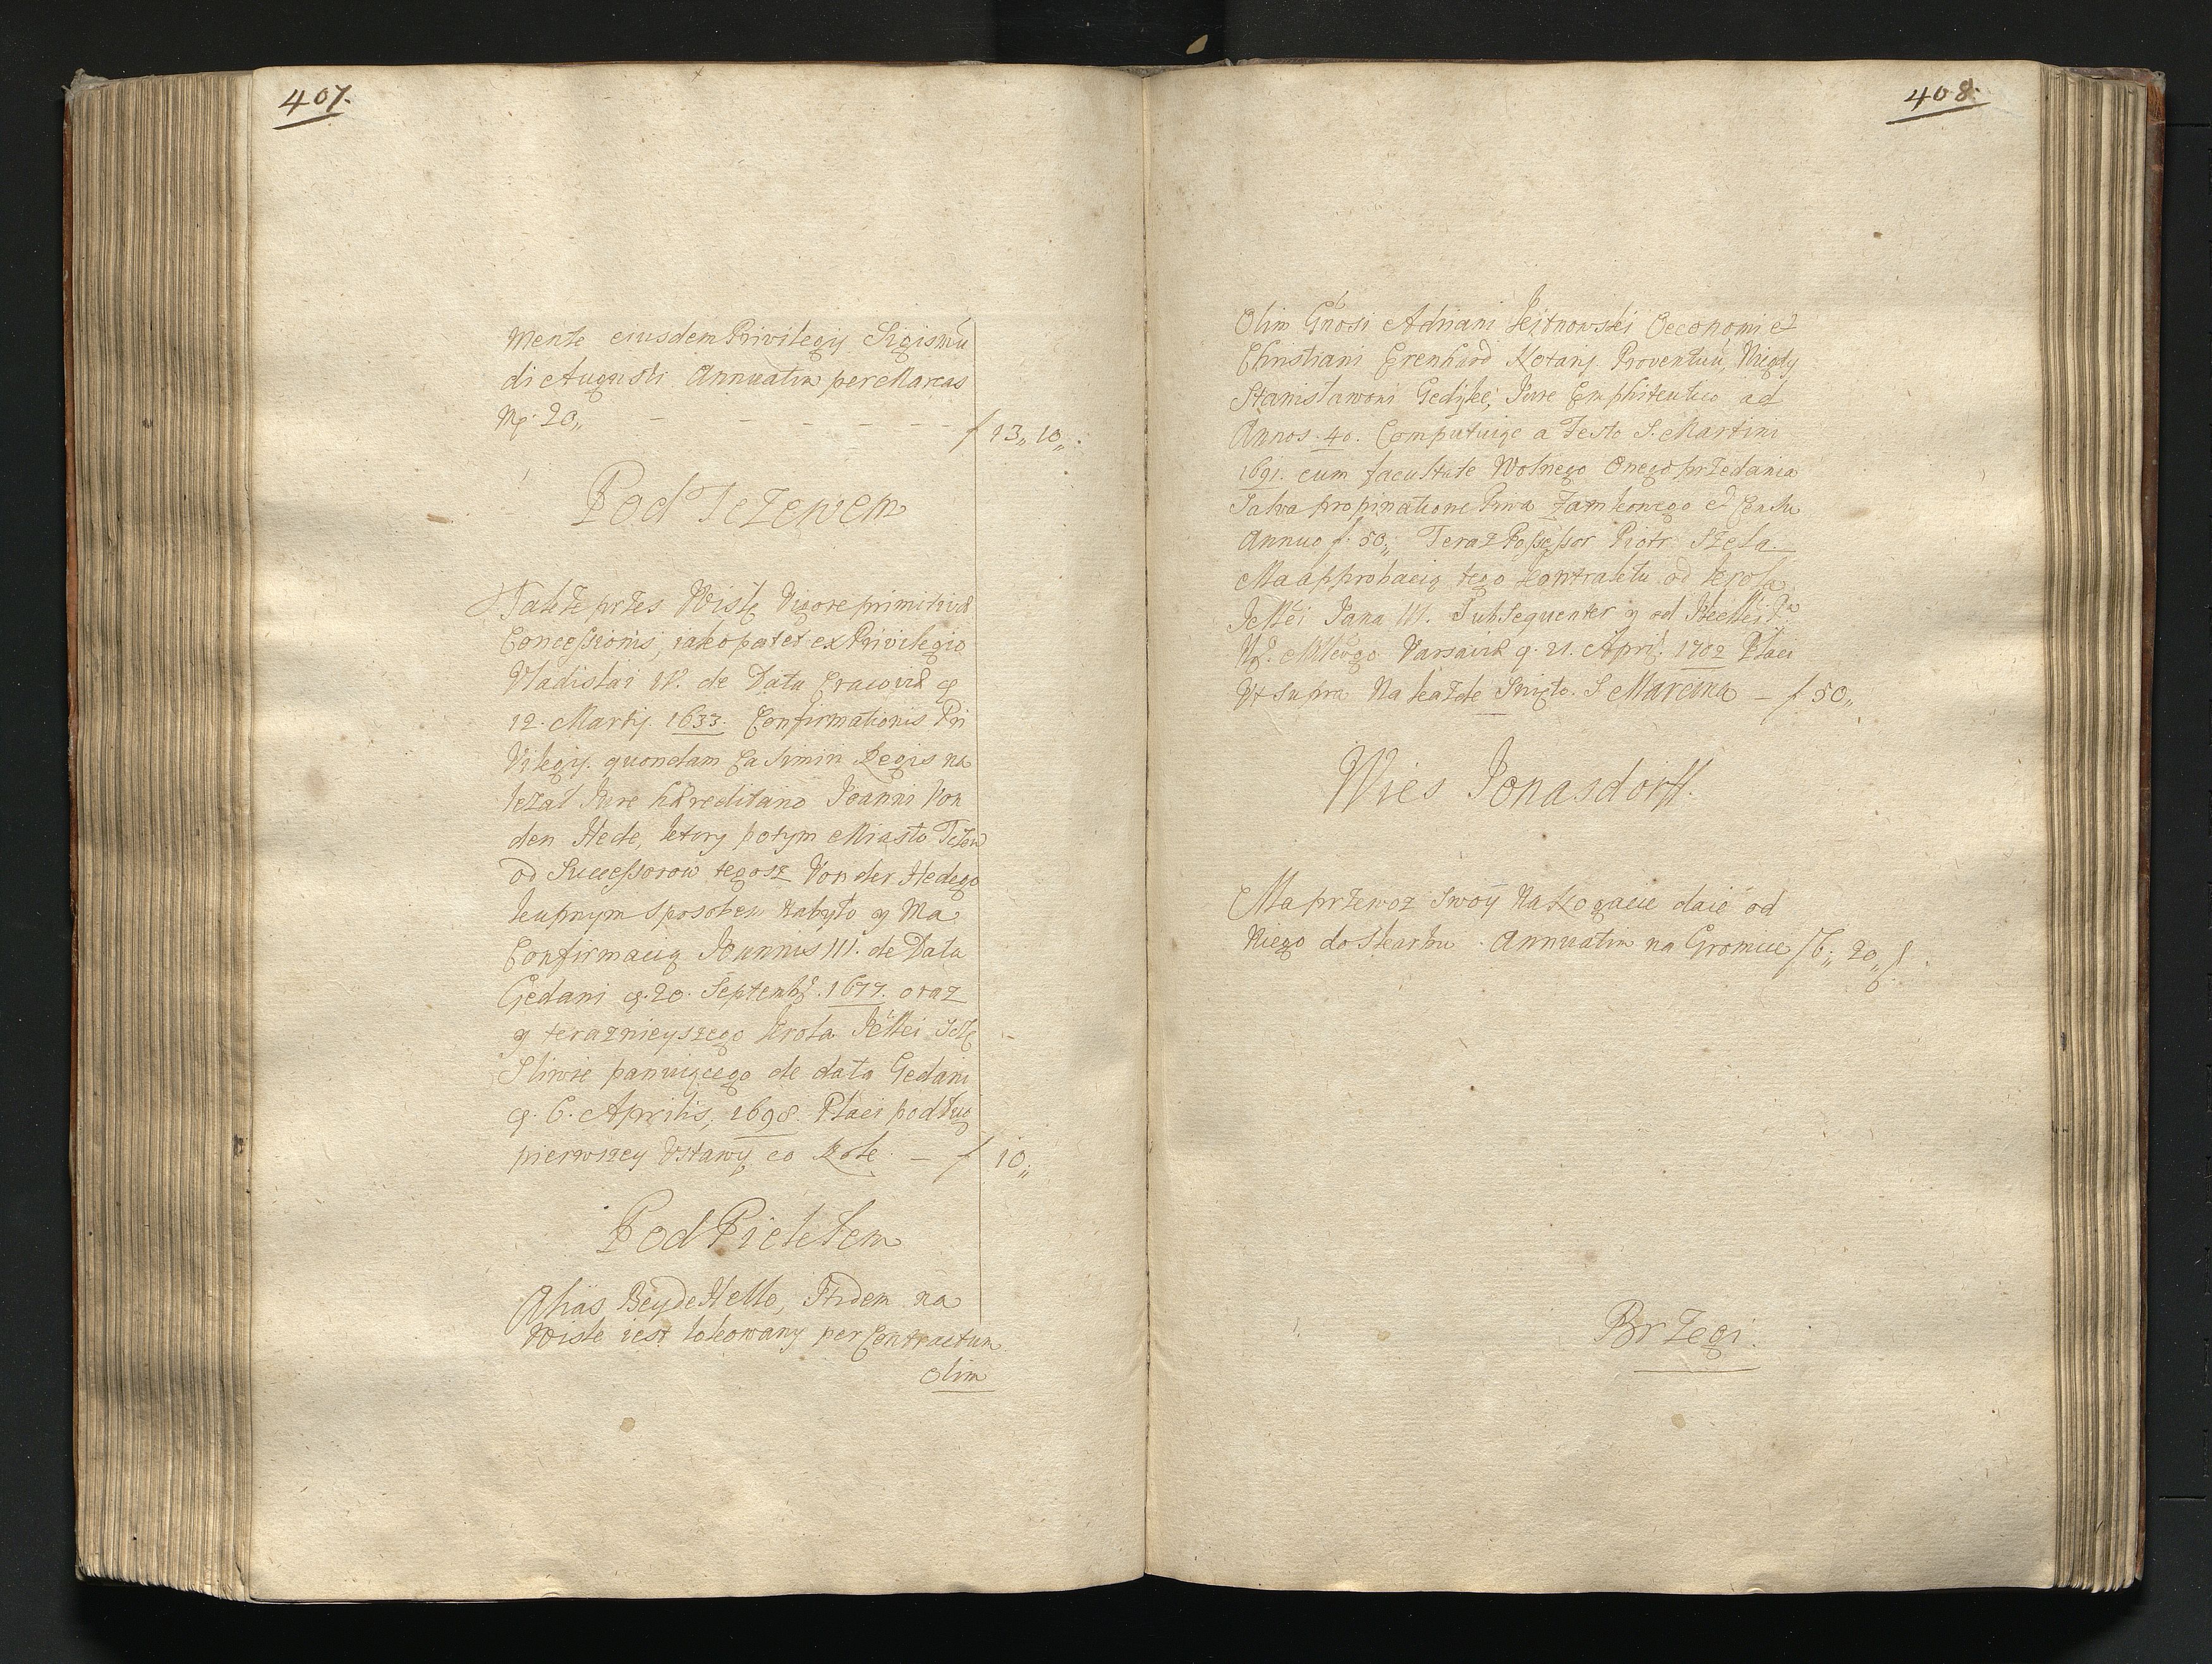 407.
Mente eiusdem Privilegij Sigismu
di Augusti Annuatim per Marcas
Np. 20,, - - - - - - f 13,, 10,,
Pod Tczewem
Także przes Wisłę Vigore primitivæ
Concessionis, iako patet ex Privilegio
Vladislai IV. de Data Cracoviæ d
12. Martij 1633. Confirmationis Pri
vilegij. quondam Casimiri Regis na
lezał Jure hæreditario Joanni Von
den Hede, ktory potym Miasto Tczew
od Successorow tegosz Von der Hedego
kupnym sposobem nabyło y Ma
Confirmacią Joannis III. de Data
Gedani d. 20. Septembr. 1677. oraz
y teraznieyszego Krola JKMci szczę
sliwie panuiącego de data Gedani
d. 6. Aprilis, 1698. Płaci podług
pierwszey Ustawy co Rok. - f 10,,
Pod Piekłem
Alias Beyde Helle, Itidem na
Wiśle iest lokowany per Contractum
olim
408.
Olim Gnosi Adriani Oeconomi et
Christiani Erenhard Notarij Proventuu, Niegdy
Stanisławowi Gedijke, Jure Emphiteutico ad
Annos 40. Computuiąc a Festo S. Martini
1691. cum facultate Wolnego Onego przedania
Salva propinatione Piwa Zamkowego et Censu
Annuo f. 50,, Teraz Possessor Piotr Szela
Ma approbacią tego kontraktu od krola
JKMci Jana III. Subsequenter y od
Varsaviæ d. 21. April. 1702 Płaci
Ut supra Na kazde Swięto S Marcina - f 50,,
Wies Jonasdorff.
Ma przewoz swoy Na Nogacie daie od
Niego do skarbu Annuatim na Gromnice f 6,, 20,,
Brzegi.